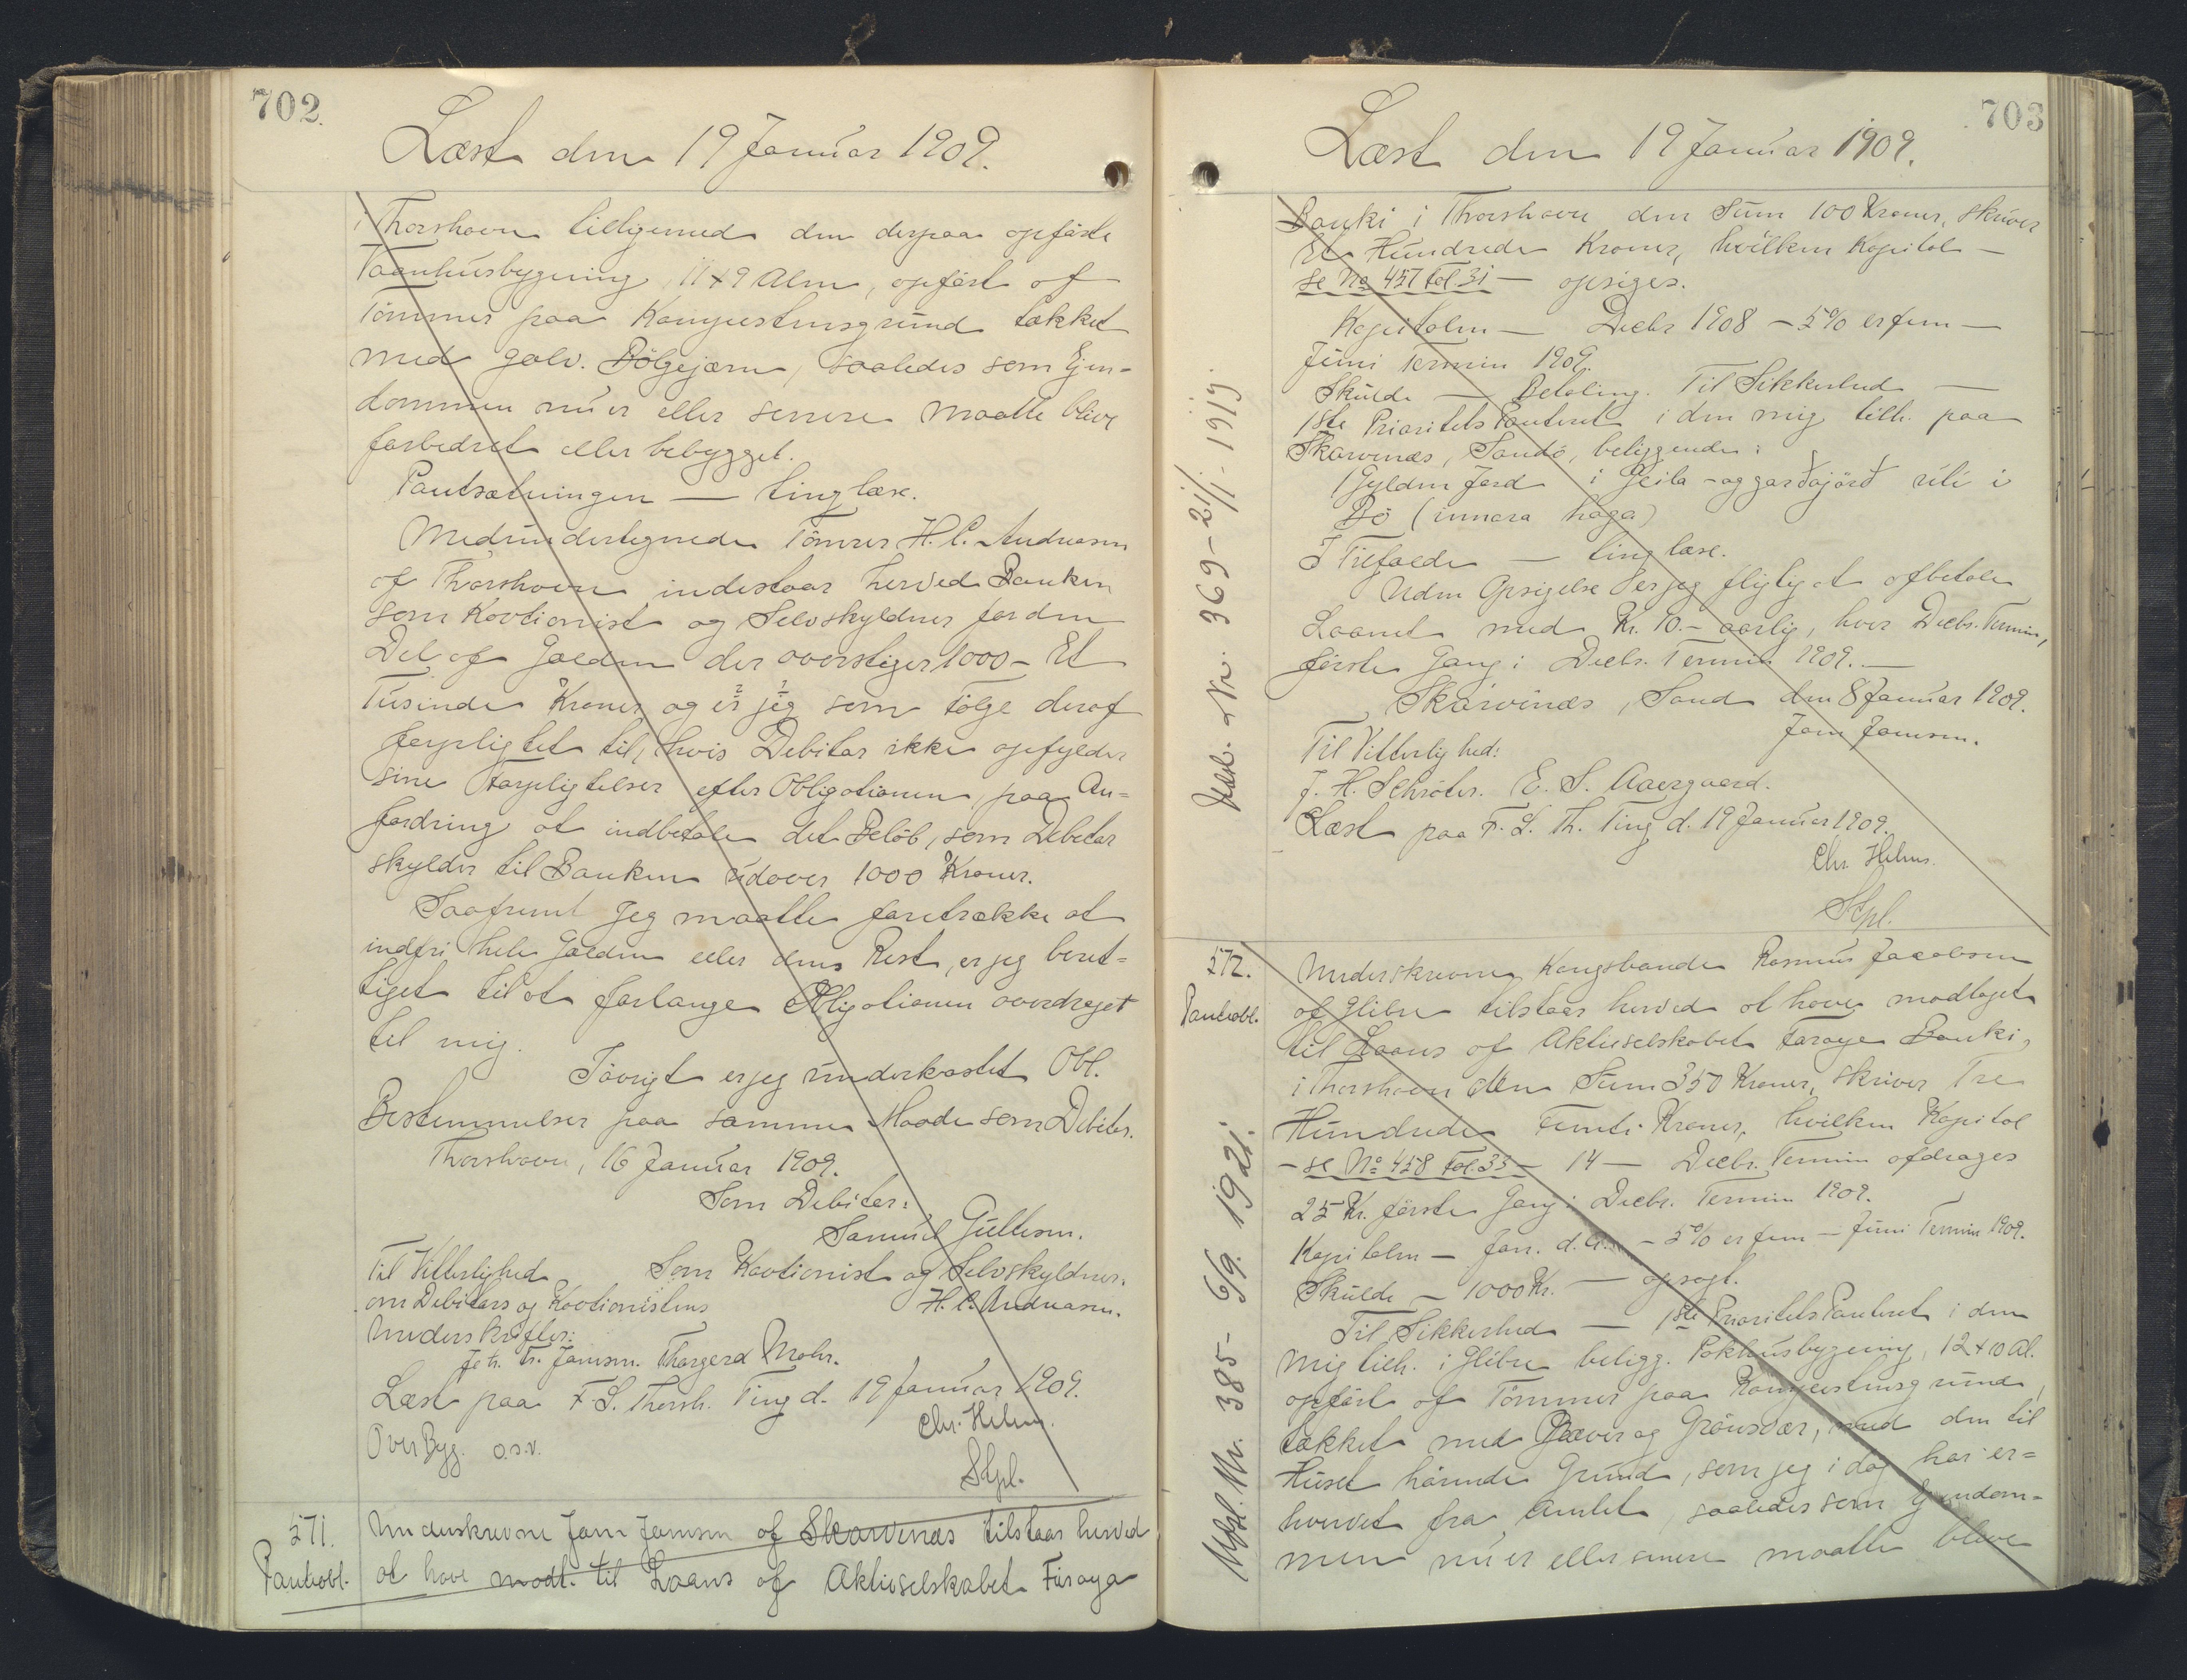 702.
Læst den 19 Januar 1909.
i Thorshavn tilligemed den derpaa opførte
Vaanhusbygning, 11 x 9 Alen, opført af
Tømmer paa Kampestensgrund tækket
med galv. Bølgejærn, saaledes som Ejen-
dommen nu er eller senere maatte blive
forbedret eller bebygget.
Pantsætningen — tinglæse.
Medundertegnede Tømrer H. C. Andreasen
af Thorshavn indestaar herved Banken
som Kavtionist og Selvskyldner for den
Del af Gælden der overstiger 1000 - Et
Tusinde Kroner og er jeg som Følge deraf
forpligtet til, hvis Debitor ikke opfylder
sine Forpligtelser efter Obligationen, paa An-
fordring at indbetale det Beløb, som Debitor
skylder til Banken udover 1000 Kroner.
Saafremt jeg maatte foretrække at
indfri hele Gælden eller dens Rest, er jeg beret-
tiget til at forlange Obligationen overdraget
til mig.
Iøvrigt er jeg underkastet Obl.
Bestemmelser paa samme Maade som Debitor.
Thorshavn, 16 Januar 1909.
Som Debitor:
Samuel Guttesen.
Til Vitterlighed Som Kavtionist og Selvskyldner:
om Debitors og Kavtionistens H. C. Andreasen.
Underskrifter:
Joh. Fr. Jansen. Thorgerd Mohr.
Læst paa F. S. Thorsh. Ting d. 19 Januar 1909.
Chr. Helms.
Over Byg. o.s.v.
Stpl.
571. Underskrevne Jam Jamsen af Skarvenæs tilstaar herved
Pantobl. at have modt. til Laans af Aktieselskabet Føroya
703
Læst den 19 Januar 1909.
Banki i Thorshavn den Sum 100 Kroner, skriver
Et Hundrede Kroner, hvilken Kapital —
se No 457 fol 31 — opsiges.
Kapitalen — Decbr 1908 - 5% er fem —
Juni Termin 1909.
Skulde — Betaling. Til Sikkerhed —
1ste Prioritets Panteret i den mig tilh. paa
Skarvenæs, Sandø, beliggende:
1 Gylden Jord i Geila- og garðajørð uti i
Bø (innara haga)
I Tilfælde — tinglæse.
Uden Opsigelse er jeg pligtig at afbetale
Laanet med Kr. 10.- aarlig, hver Decbr. Termin,
første Gang i Decbr. Termin 1909. —
Skarvenæs, Sand den 8 Januar 1909.
Jam Jamsen.
Til Vitterlighed:
J. H. Schrøter. E. S. Aaergaard.
Læst paa F. S. Th. Ting d. 19 Januar 1909.
Chr. Helms.
Stpl.
Udsl. Nr. 369 - 21/1. 1919.
572. Underskrevne Kongsbonde Rasmus Jacobsen
Pantobl. af Glibre tilstaar herved at have modtaget
til Laans af Aktieselskabet Føroya Banki,
i Thorshavn den Sum 350 Kroner, skriver Tre
Hundrede Femti Kroner, hvilken Kapital
- se No 458 Fol. 33 - 14 — Decbr. Termin afdrages
25 Kr. første Gang i Decbr. Termin 1909.
Kapitalen — Jan. d. A. - 5% er fem - Juni Termin 1909.
Skulde — 1000 Kr. — opsagt.
Til Sikkerhed — 1ste Prioritets Panteret i den
mig tilh. i Glibre beligg. Pakhusbygning, 12 x 10 Al.
opført af Tømmer paa Kampestensgrund,
tækket med Næver og Grønsvær, med den til
Huset hørende Grund, som jeg i dag har er-
hvervet fra Amtet, saaledes som Ejendom-
men nu er eller senere maatte blive
Udsl. Nr. 385 - 6/9. 1921.